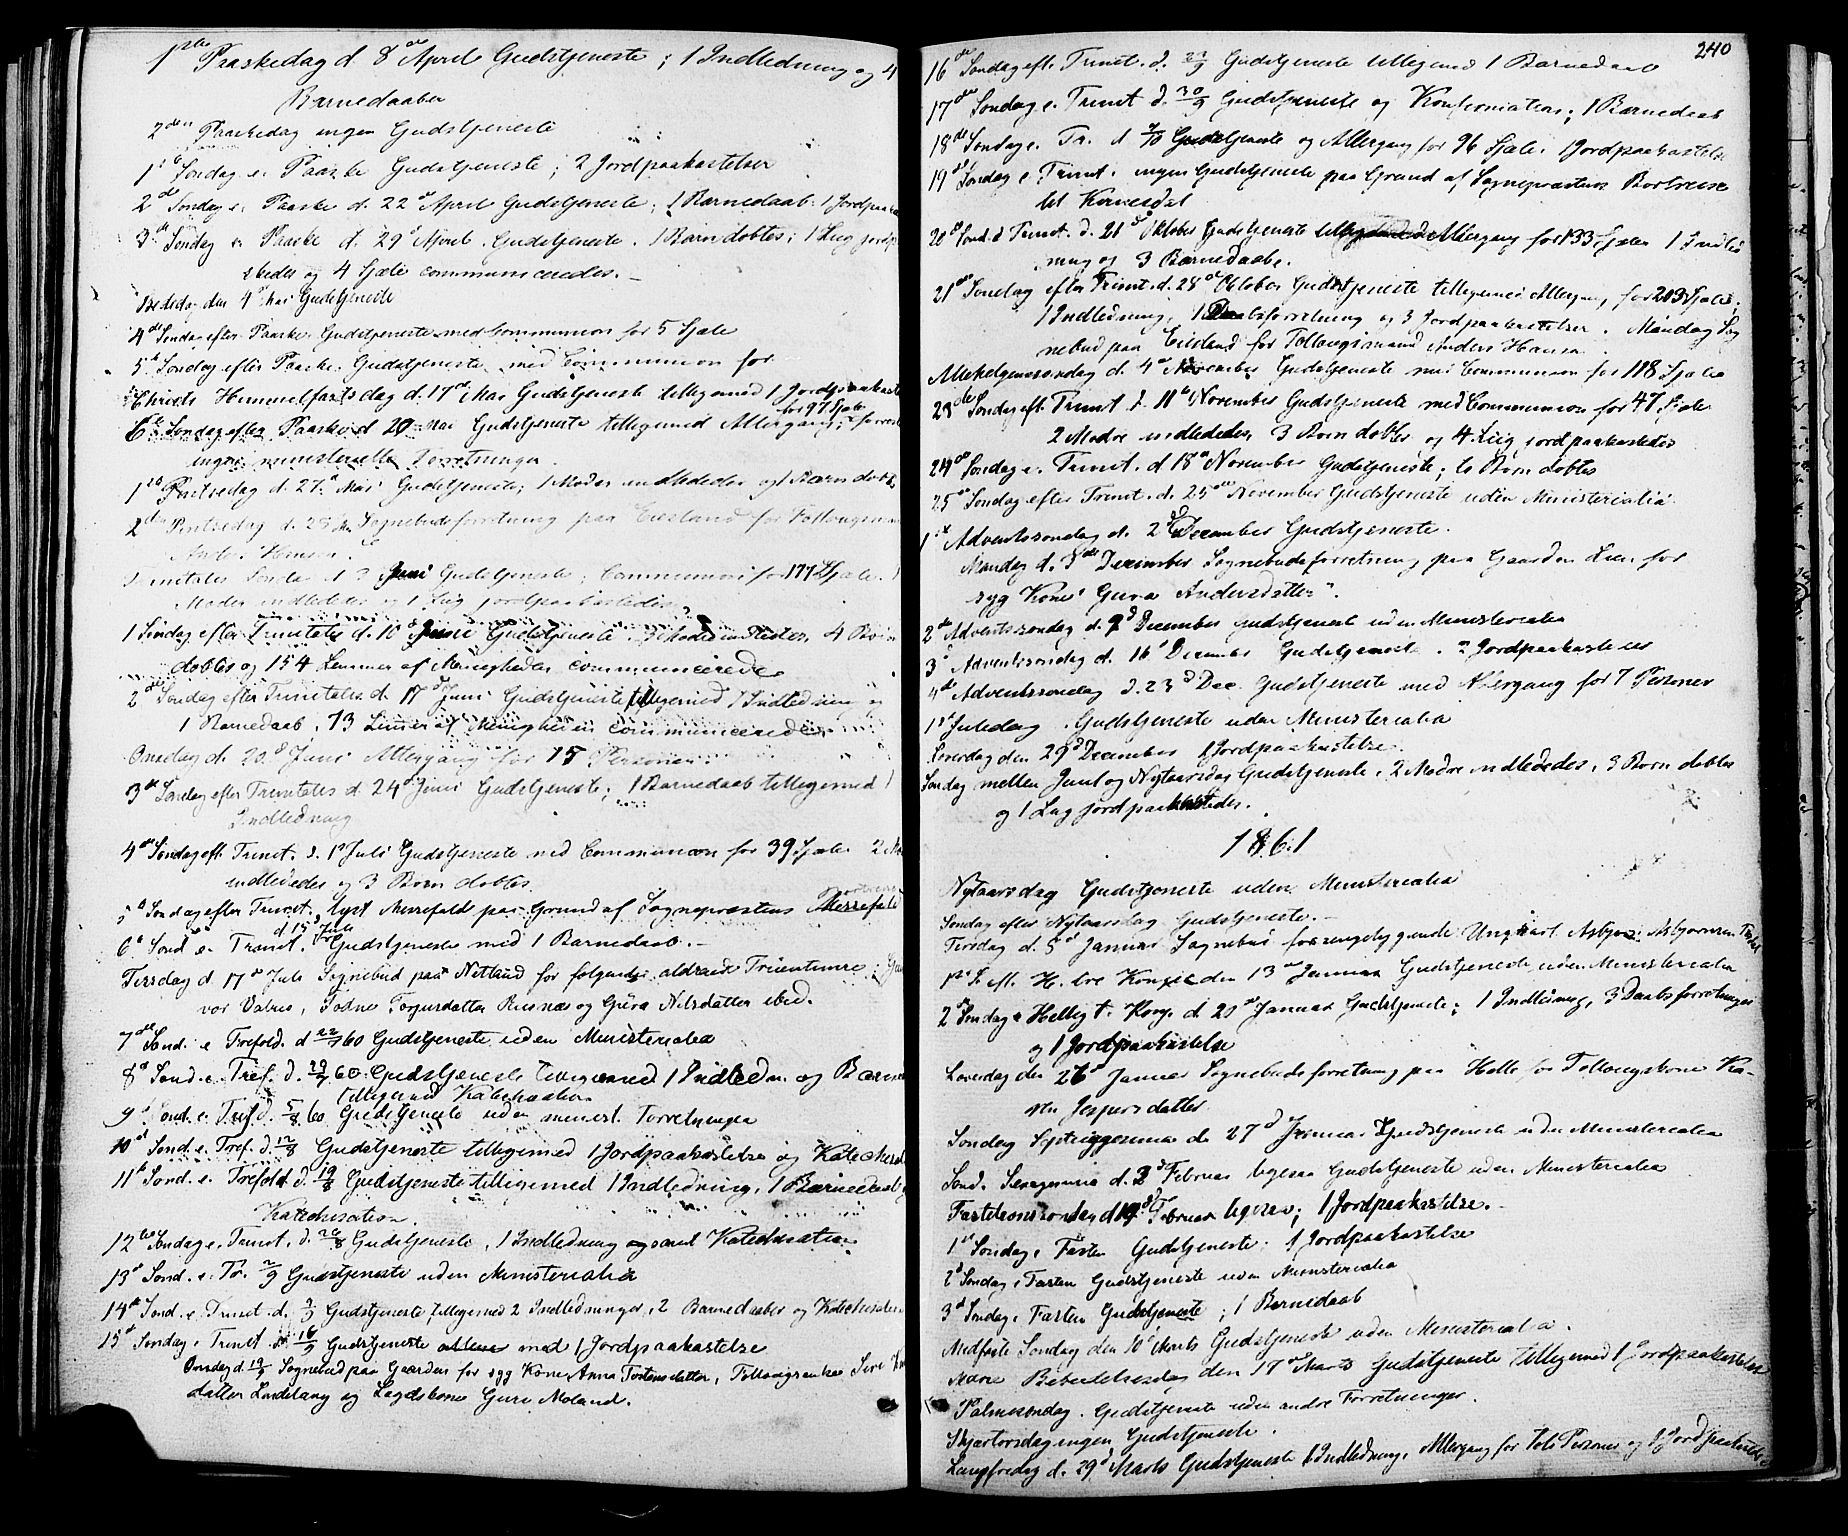 1ste Paaskedag d. 8de April Gudstjeneste; 1 Indledning og 4
Barnedaaber
2den Paaskedag ingen Gudstjeneste
1ste Søndag e. Paaske Gudstjeneste; 2 Jordpaakastelser
2de Søndag e. Paaske d. 22 April Gudstjeneste; 1 Barnedaab. 1 Jordpaaka
3de Søndag e. Paaske d. 29 April. Gudstjeneste. 1 Barn døbtes; 1 Liig jordp
stedes og 4 Sjæle communiceredes.
Bededag den 4 Mai Gudstjeneste
4de Søndag efter Paaske Gudstjeneste med Communion for 5 Sjæle
5te Søndag efter Paaske Gudstjeneste med Communion for
Christi Himmelfartsdag d. 17de Mai Gudstjeneste tillegemed 1 Jordpaakaste
for 97 Sjæle
6te Søndag efter Paaske d. 20 Mai Gudstjeneste tillegemed Altergang,
ingen ministerielle Forretninger.
1ste Pintsedag d. 27 Mai Gudstjeneste; 1 Moder indlededes og 1 Barn døbt
2den Pintsedag d. 28 Sognebudsforretning paa Eiesland for Follaugsmand
Hansen.
Trinitatis Søndag d. 3 Juni Gudstjeneste; Communion for 177 Sjæle. 1
Moder indlededes og 1 Liig jordpaakastedes.
1 Søndag efter Trinitatis d. 10 Juni Gudstjeneste. 4 Børn
døbtes og 154 Lemmer af Menigheden communicerede
2den Søndag efter Trinitatis d. 17 Juni Gudstjeneste tillegemed 1 Indledning og
1 Barnedaab. 73 Lemmer af Menigheden communicerede.
Onsdag d. 20 Juni Altergang for 15 Personer
3de Søndag efter Trinitatis d. 24 Juni Gudstjeneste; 1 Barnedaab tillegemed 1
Indledning
4de Søndag eft. Trinit. d. 1 Juli Gudstjeneste med Communion for 39 Sjæle. 2 M
indlededes og 3 Børn døbtes.
5te Søndag efter Trinit. lyst Messefald paa Grund af Sognepræstens Messefald
d 15 Juli
6te Sønd. e. Trinit. Gudstjeneste med 1 Barnedaab.
Tirsdag d. 17de Juli Sognebud paa Netland for følgende aldrende Troentunre
vor Valnes, Torgersdatter Risnæs og Guro Nilsdatter ibid.
7de Sønd. e Trefold. d 22/7 60 Gudstjeneste uden Ministerialia
8de Sønd. e. Tref. d. 29/7 60 Gudstjeneste tillegemed 1 Indledn. og Barne
tillegemed Katechisation
9de Sønd. e. Tref. d. 5/8 60 Gudstjeneste uden minist. Forretninger
10de Sønd. e. Tref. d. 12/8 Gudstjeneste tillegemed 1 Jordpaakastelse og Katechisat
11te Sønd. e. Trefold. d. 19/8 Gudstjeneste tilligemed 1 Indledning, 1 Barnedaab
Katechisation.
12te Søndag e. Trinit. d. 26/8 Gudstjeneste, 1 Indledning og samt Katechisation
13de Sønd. e. Tr. 2/9 Gudstjeneste uden Ministerialia
14de Sønd. e. Trinit. d. 9/9 Gudstjeneste, tillegemed 2 Indledninger, 2 Barnedaaber og Katechisation
15de Søndag e. Trinit. d. 16/9 Gudstjeneste med 1 Jordpaakastelse
Onsdag d. 19/9 Sognebud paa Gaarden for syg Kone Anna Torstensdatter, Follaugsenke Siri
datter Lindeland og Lægdskone Guri Moland.
240
16de Søndag eft. Trinit. d. 23/9 Gudstjeneste tillegemed 1 Barnedaab
17de Søndag e. Trinit d. 30/9 Gudstjeneste og Konfirmation; 1 Barnedaab
18de Søndag e. Tr. d 7/10 Gudstjeneste og Altergang for 96 Sjæle. 1 Jordpaakastelse
19de Søndag e. Trinit. ingen Gudstjeneste paa Grund af Sognepræstens Bortreise
til Kvinesdal
20de Sønd. e Trinit. d. 21 Oktober Gudstjeneste tilligemed Altergang for 133 Sjæle 1 Indled
ning og 3 Barnedaabe.
21de Søndag efter Trinit. d. 28de Oktober Gudstjeneste tilligemed Altergang for 203 Sjæle;
1 Indledning, 1 Daabsforretning og 3 Jordpaakastelser. Mandag Sog
nebud paa Eiesland for Follaugsmand Anders Hansen
Allehelgenssøndag d. 4de November Gudstjeneste med Communion for 118 Sjæle
23de Søndag eft. Trinit d. 11te November Gudstjeneste med Communion for 47 Sjæle
2 Mødre indlededes, 3 Børn døbtes og 4 Liig jordpaakastedes
24de Søndag e. Trinit. d. 18de November Gudstjeneste; to Børn døbtes
25de Søndag efter Trinit. d. 25de November Gudstjeneste uden Ministerialia
1ste Adventssøndag d. 2 December Gudstjeneste.
Mandag d. 3de December Sognebudsforretning paa Gaarden Lien for
syg Kone Guro Andersdatter.
2de Adventssøndag d. 9 December Gudstjeneste uden Ministerialia
3de Adventssøndag d. 16 December Gudstjeneste. 2 Jordpaakastelser
4de Adventssøndag d. 23 Dec. Gudstjeneste med Altergang for 7 Personer
1ste Juledag. Gudstjeneste uden Ministerialia
Løverdag den 29 December 1 Jordpaakastelse.
Søndag mellem Juul og Nytaarsdag Gudstjeneste. 2 Mødre indlededes, 3 Børn døbtes
og 1 Liig jordpaakastedes.
1861
Nytaarsdag Gudstjeneste uden Ministerialia
Søndag efter Nytaarsdag Gudstjeneste.
Tirsdag d. 5 Januar Sognebud for sengeliggende Ungkarl Asbjørn Asbjørnsen
1ste S. eft. H. tre Konger den 13de Januar Gudstjeneste uden Ministerialia
2 Søndag e Hellig t. Kong. d. 20de Januar Gudstjeneste; 1 Indledning, 3 Daabsforretninger
og 1 Jordpaakastelse
Løverdag den 26 Januar Sognebudsforretning paa Helle for Follaugskone Ka-
ren Jespersdatter
Søndag Septuagesima d. 27 Januar Gudstjeneste uden Ministerialia
Sønd. Sexagesima d. 3 Februar ligesaa Gudstjeneste uden Ministerialia
Fastelavnssøndag d. 10 Februar ligesaa; 1 Jordpaakastelse.
1ste Søndag i Fasten Gudstjeneste; 1 Jordpaakastelse
2de Søndag i Fasten Gudstjeneste uden Ministerialia
3de Søndag i Fasten Gudstjeneste; 1 Barnedaab
Midfaste Søndag den 10de Marts Gudstjeneste uden Ministerialia.
Mariæ Bebudelsesdag den 17de Marts Gudstjeneste tilligemed 1 Jordpaakastelse
Palmesøndag. Gudstjeneste uden andre Forretninger.
Skjærtorsdag ingen Gudstjeneste.
Langfredag d. 29 Marts Gudstjeneste 1 Indledning. Altergang for tolv Personer og 1 Jordpaakastelse